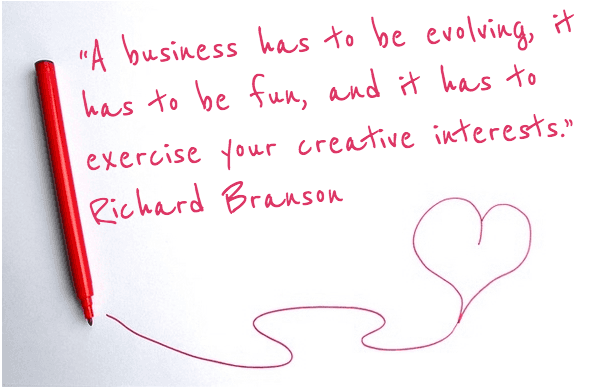 "A business has to be evolving, it
has to be fun, and it has to
exercise your creative interests."
Richard Branson